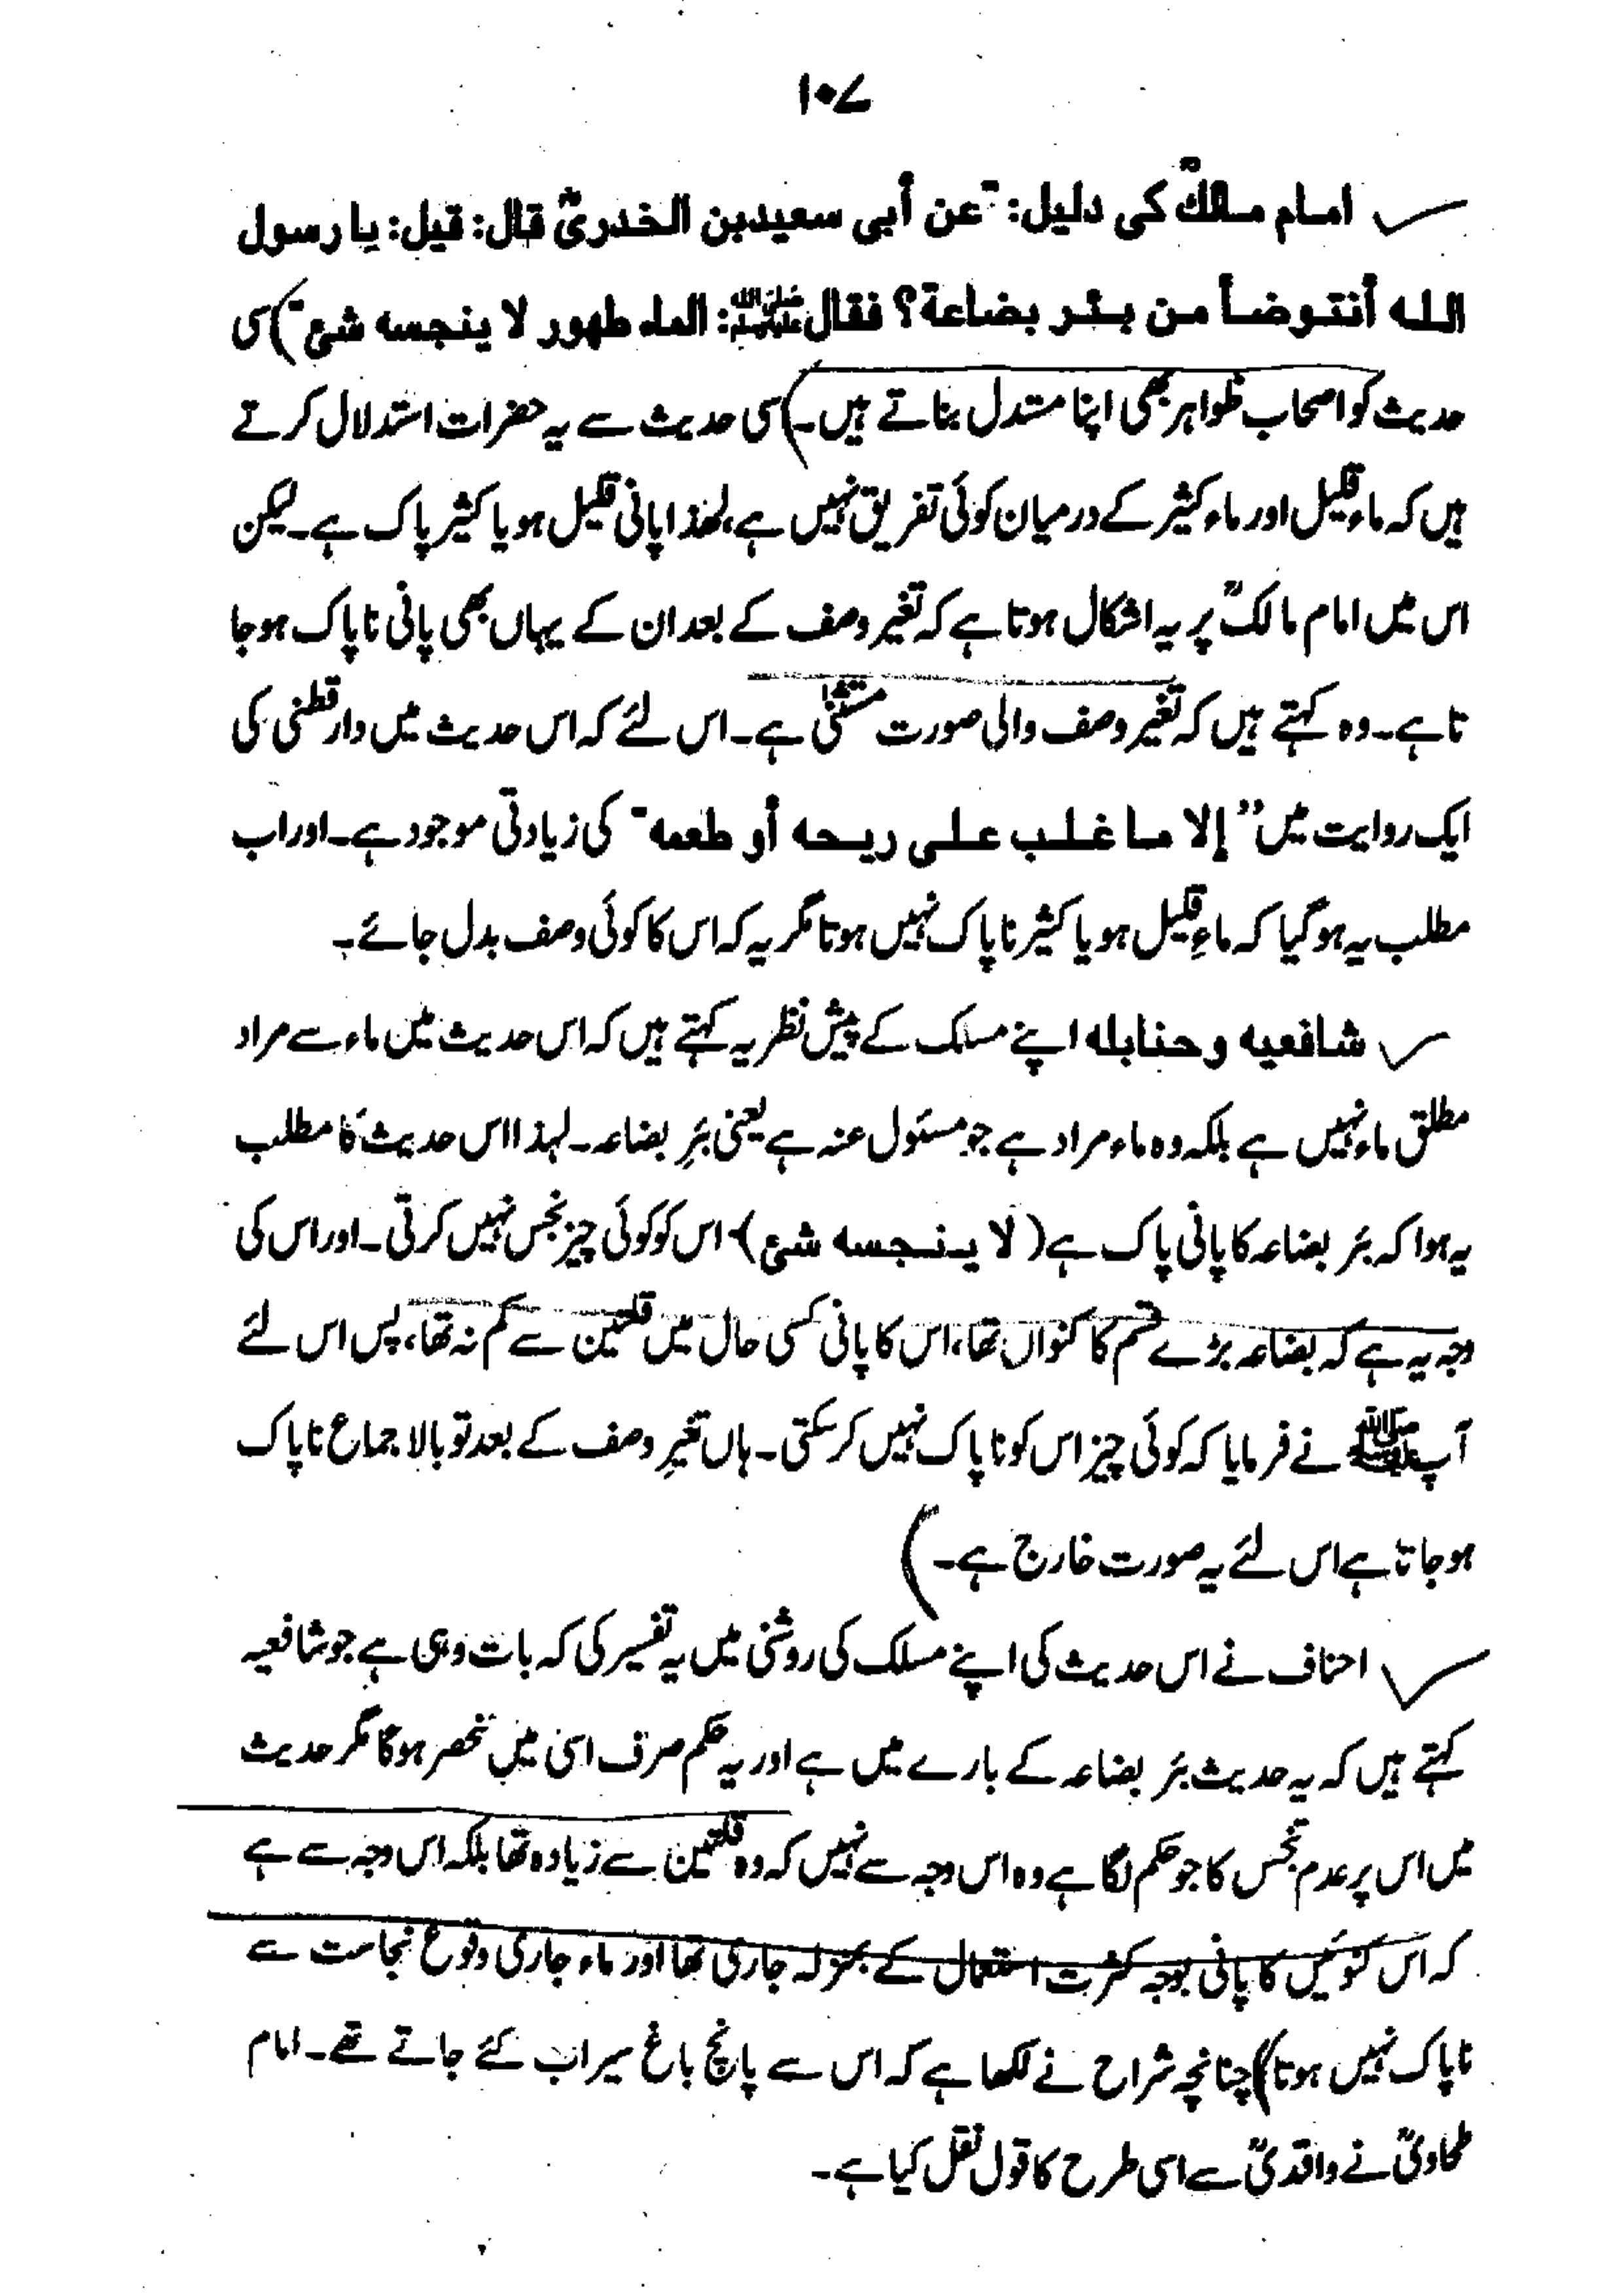 ۱۰۷
امام مالکؒ کی دلیل: "عن أبی سعیدبن الخدریؓ قال: قیل: یا رسول
اللہ أنتوضأ من بئر بضاعة؟ فقال ﷺ: الماء طهور لا ینجسه شئ" اسی
حدیث کو اصحاب ظواہر بھی اپنا مستدل بناتے ہیں۔ اسی حدیث سے یہ حضرات استدلال کرتے
ہیں کہ ماء قلیل اور ماء کثیر کے درمیان کوئی تفریق نہیں ہے، لھذا پانی قلیل ہو یا کثیر پاک ہے۔ لیکن
اس میں امام مالکؒ پر یہ اشکال ہوتا ہے کہ تغیر وصف کے بعد ان کے یہاں بھی پانی ناپاک ہوجا
تا ہے۔ وہ کہتے ہیں کہ تغیر وصف والی صورت مستثنیٰ ہے۔ اس لئے کہ اس حدیث میں دارقطنی کی
ایک روایت میں "إلا ما غلب علی ریحه أو طعمه" کی زیادتی موجود ہے۔ اور اب
مطلب یہ ہوگیا کہ ماءِ قلیل ہو یا کثیر ناپاک نہیں ہوتا مگر یہ کہ اس کا کوئی وصف بدل جائے۔
شافعیه و حنابله اپنے مسلک کے پیش نظر یہ کہتے ہیں کہ اس حدیث میں ماء سے مراد
مطلق ماء نہیں ہے بلکہ وہ ماء مراد ہے جو مسئول عنہ ہے یعنی بئرِ بضاعہ۔ لہذا اس حدیث کا مطلب
یہ ہوا کہ بئر بضاعہ کا پانی پاک ہے (لا ینجسه شئ) اس کو کوئی چیز نجس نہیں کرتی۔ اور اس کی
وجہ یہ ہے کہ بضاعہ بڑے قسم کا کنواں تھا، اس کا پانی کسی حال میں قلتین سے کم نہ تھا، پس اس لئے
آپ ﷺ نے فرمایا کہ کوئی چیز اس کو ناپاک نہیں کرسکتی۔ ہاں تغیرِ وصف کے بعد تو بالاجماع ناپاک
ہوجاتا ہے اس لئے یہ صورت خارج ہے۔)
احناف نے اس حدیث کی اپنے مسلک کی روشنی میں یہ تفسیر کی کہ بات وہی ہے جو شافعیہ
کہتے ہیں کہ یہ حدیث بئر بضاعہ کے بارے میں ہے اور یہ حکم صرف اسی میں منحصر ہوگا مگر حدیث
میں اس پر عدم تنجس کا جو حکم لگا ہے وہ اس وجہ سے نہیں کہ وہ قلتین سے زیادہ تھا بلکہ اس وجہ سے ہے
کہ اس کنوئیں کا پانی بوجہ کثرت استعمال کے بمنزلہ جاری تھا اور ماء جاری وقوع نجاست سے
ناپاک نہیں ہوتا) چنانچہ شراح نے لکھا ہے کہ اس سے پانچ باغ سیراب کئے جاتے تھے۔ امام
طحاویؒ نے واقدیؒ سے اسی طرح کا قول نقل کیا ہے۔